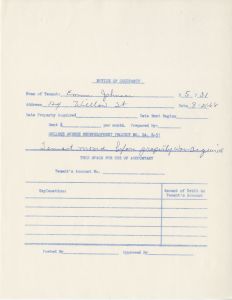 NOTICE OF OCCUPANCY
Name of Tenant: Emma Johnson 5-31
Address 124 Willow St Date 3-2066
Date Property Acquired Date Rent Begins
Rent $ per month. Prepared by:
COLLEGE AVENUE REDEVELOPMENT PROJECT NO.
Tenant moved before property was acquired
THIS SPACE FOR USE OF ACCOUNTANT
Tenant's Account No.
Explanation: Amount of Debit to
Tenant's Account
Posted By Approved By